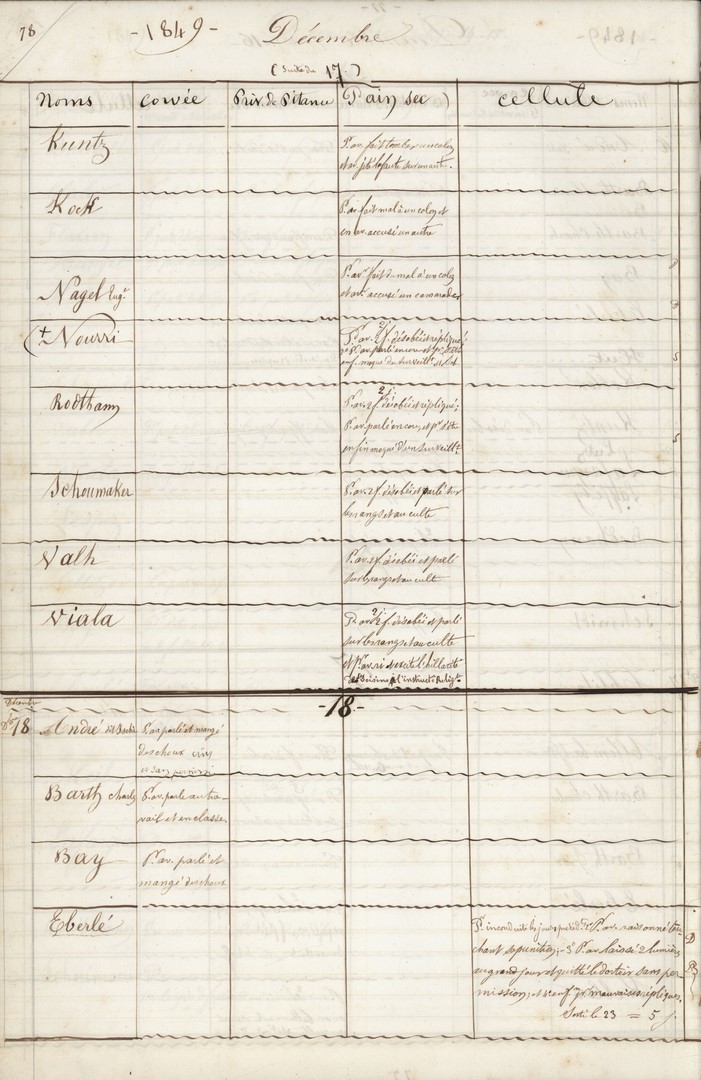 78 -1849- Décembre
(Suite du 17.)
Noms corvée Priv. de Pitance Pain sec cellule
Kuntz P. av. fait tomber un colon
et av. jeté la faute sur un autre.
Kock P. av. fait mal à un colon et
en av. accusé un autre
Nagel Eug. P. av. fait du mal à un colon
et av. accusé un camarade
Nourri P. av. 2 f. désobéi et répliqué
P. av. parlé encore et
enf. moqué du surveillt.
Rodthamy P. av. 2 f. désobéi et répliqué;
P. av. parlé encore, et p.
enfin moqué d'un surveillt.
Schoumaker P. av. 2 f. désobéi et parlé sur
les rangs et au culte
Valh P. av. 2 f. désobéi et parlé
sur les rangs et au culte
Viala P. av. 2 f. désobéi et parlé
sur les rangs et au culte
et p. av. ri et excité l'hillarité
à l'instruct. Relig.
-18-
Décembre
18 André P. av. parlé et mangé
des choux crus
et sans permiss.
Barth Charles P. av. parlé au tra-
vail et en classe
Bay P. av. parlé et
mangé des choux
Eberlé P. inconduite les jours précéd. P. av. raisonné tou-
chant sa punition; P. av. laissé 2 lumières
au grand jour et quitté le dortoir sans per-
mission; et enf. pr. mauvaises répliques.
Sorti le 23 = 5 j.